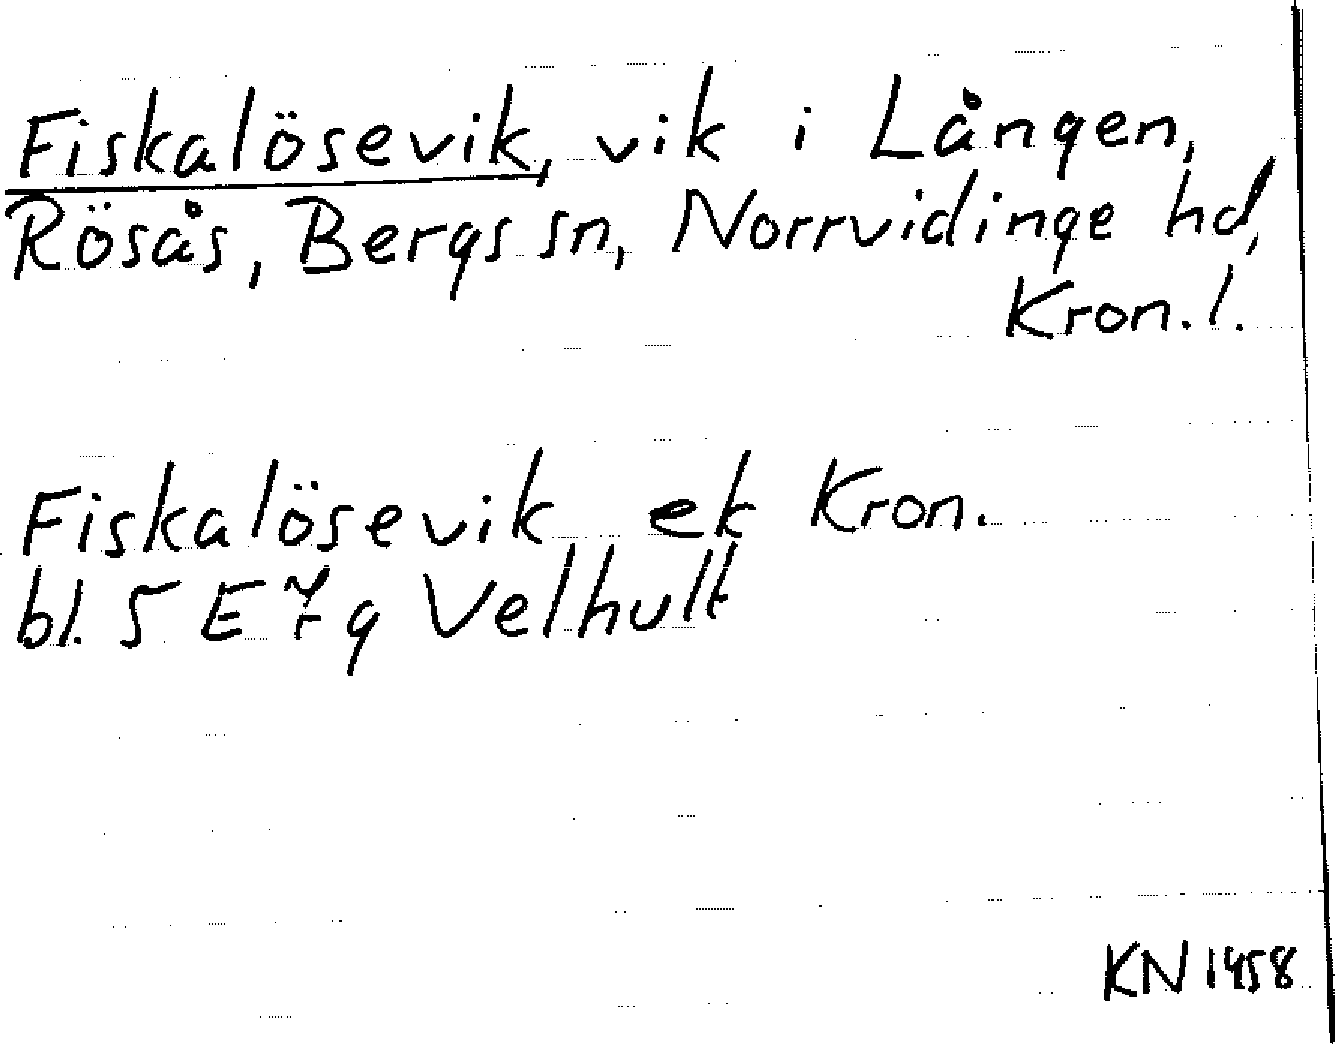 Fiskalösevik, vik i Lången,
Rösås, Bergs sn, Norrvidinge hd,
Kron. l.
Fiskalösevik ek Kron.
bl. 5 E 7 g Velhult
KN 1958